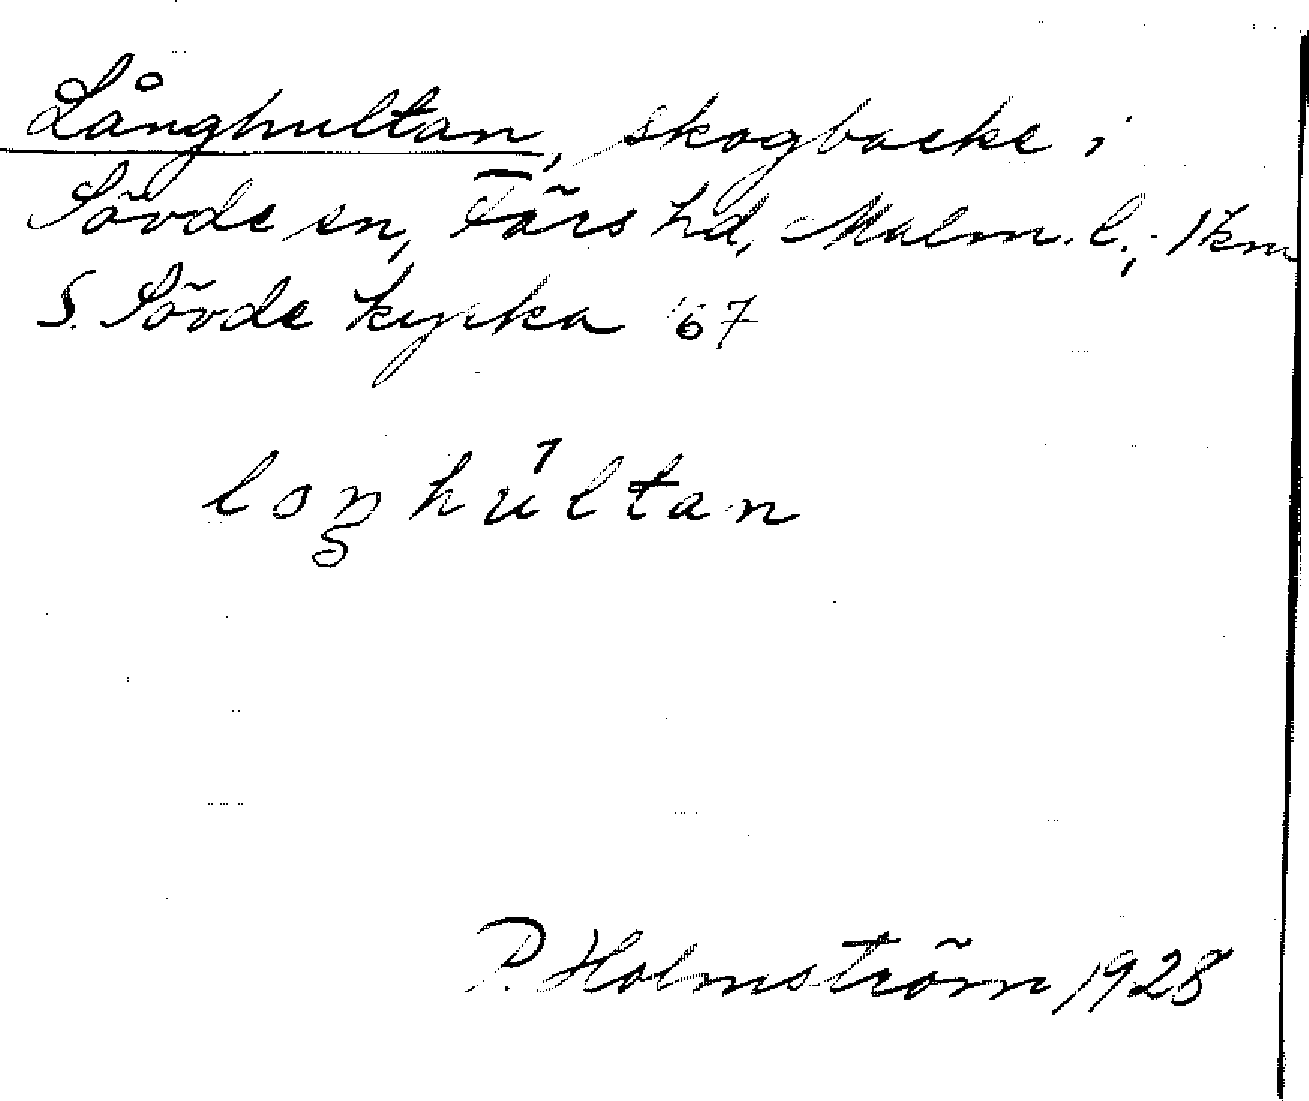 Långhultan, skogbacke i
Sövde sn, Färs hd, Malm. l.; 1 km
S. Sövde kyrka '67
loŋhultan
P. Holmström 1928